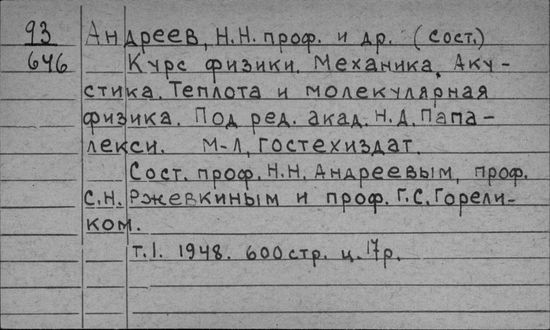 93 Андреев, Н.Н. проф. и др. (сост.)
646 Курс физики. Механика. Аку-
стика. Теплота и молекулярная
физика. Под ред. акад. Н.Д. Папа-
лекси. М-Л, Гостехиздат.
Сост. проф. Н.Н. Андреевым, проф.
С.Н. Ржевкиным и проф. Г.С. Горели-
ком.
т.1. 1948. 600 стр. ц. 17р.